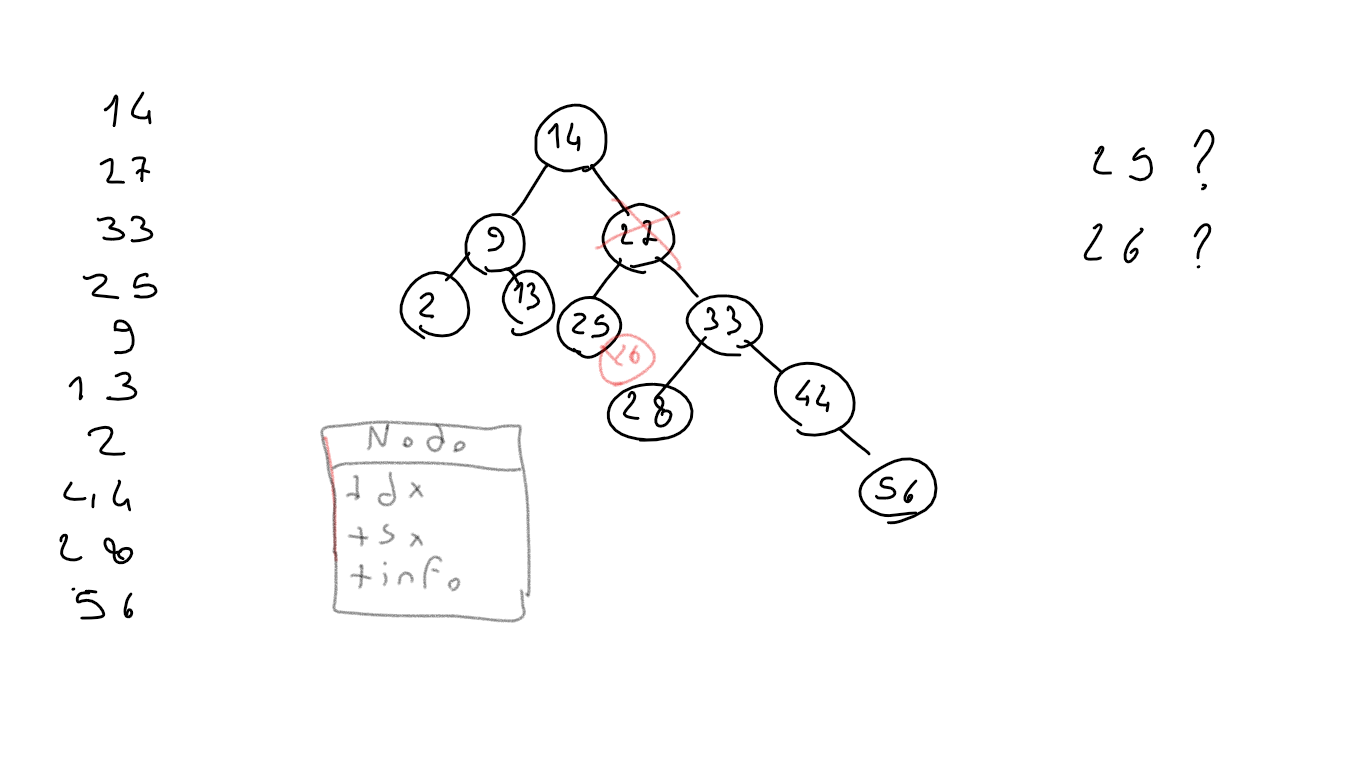 14
27
33
25
9
13
2
44
28
56
14
9
27
2
13
25
33
26
28
44
56
Nodo
+dx
+sx
+info
25 ?
26 ?